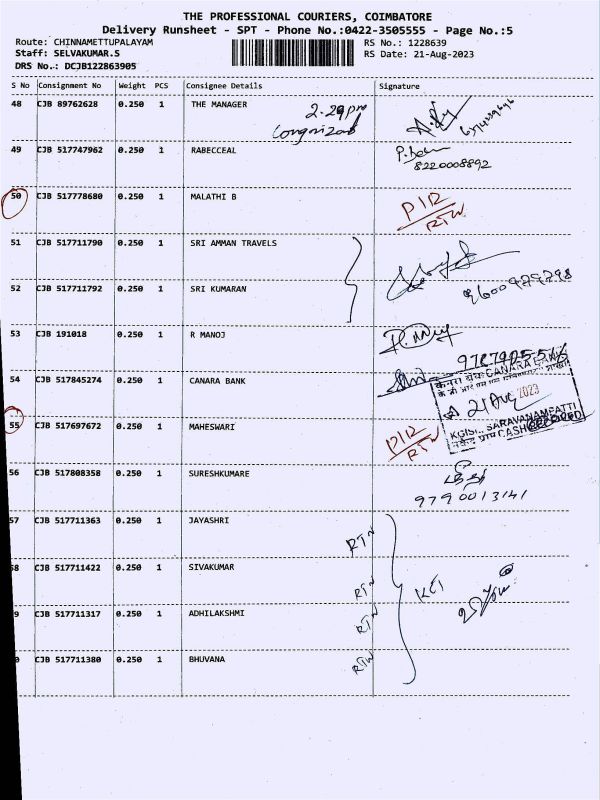 THE PROFESSIONAL COURIERS, COIMBATORE
Delivery Runsheet - SPT - Phone No.:0422-3505555 - Page No.:5
Route: CHINNAMETTUPALAYAM
RS No.: 1228639
Staff: SELVAKUMAR.S
RS Date: 21-Aug-2023
DRS No.: DCJB122863905
S No Consignment No Weight PCS Consignee Details Signature
48 CJB 89762628 0.250 1 THE MANAGER 2.29pm
49 CJB 517747962 0.250 1 RABECCEAL
8220008892
50 CJB 517778680 0.250 1 MALATHI B PIR
RTN
51 CJB 517711790 0.250 1 SRI AMMAN TRAVELS
52 CJB 517711792 0.250 1 SRI KUMARAN
53 CJB 191018 0.250 1 R MANOJ
54 CJB 517845274 0.250 1 CANARA BANK
CANARA BANK
21 AUG 2023
55 CJB 517697672 0.250 1 MAHESWARI PIR
RTN
KGISL, SARAVANAMPATTI
56 CJB 517808358 0.250 1 SURESHKUMARE
9790013141
57 CJB 517711363 0.250 1 JAYASHRI
RTN
8 CJB 517711422 0.250 1 SIVAKUMAR
RTN
9 CJB 517711317 0.250 1 ADHILAKSHMI
RTN
CJB 517711380 0.250 1 BHUVANA
RTN